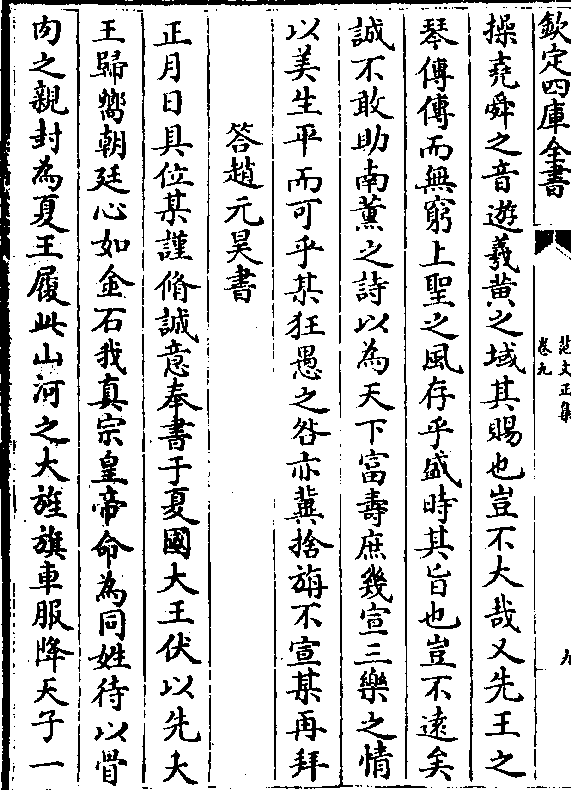 欽定四庫全書
范文正集
卷九
九
操堯舜之音遊羲黄之域其賜也豈不大哉又先王之
琴傳傳而無窮上聖之風存乎盛時其旨也豈不遠矣
誠不敢助南薰之詩以為天下富壽庶幾宣三樂之情
以美生平而可乎某狂愚之咎亦冀捨旃不宣某再拜
答趙元昊書
正月日具位某謹脩誠意奉書于夏國大王伏以先大
王歸嚮朝廷心如金石我真宗皇帝命為同姓待以骨
肉之親封為夏王履此山河之大旌旗車服降天子一